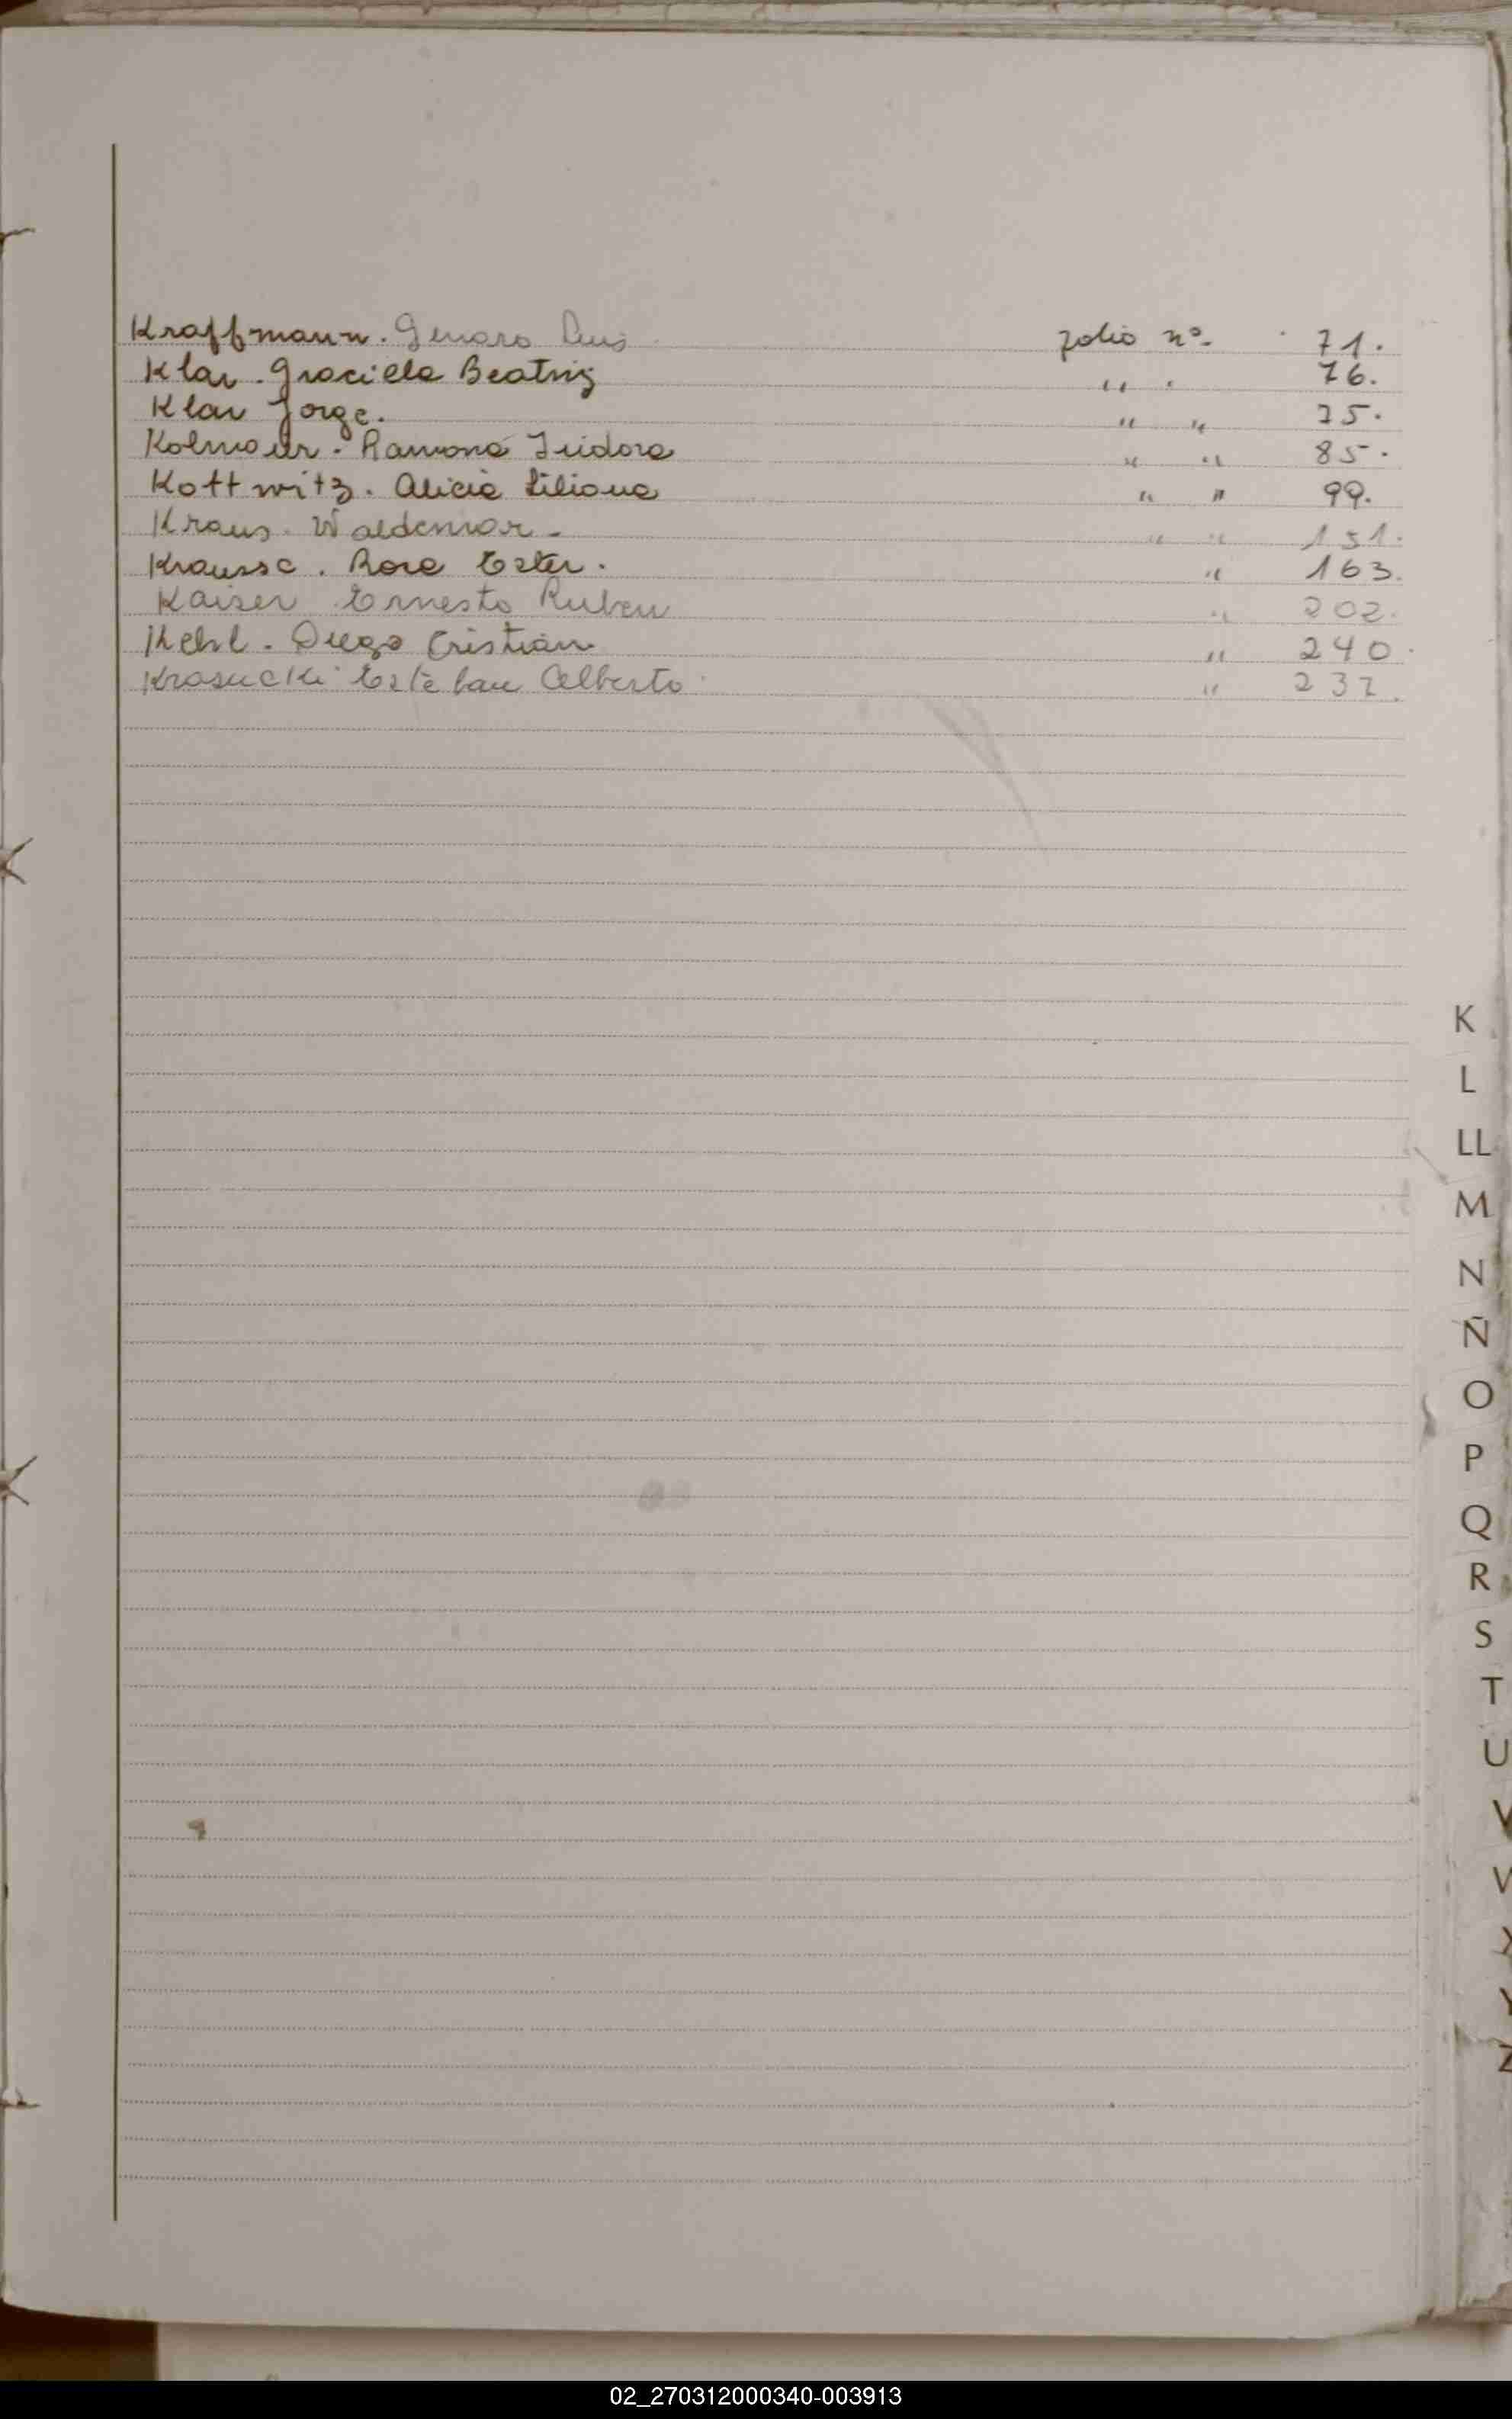 Kraffmann. Genaro Luis folio nº 71.
Klar. Graciela Beatriz " " 76.
Klar Jorge. " " 75.
Kolmaur. Ramona Isidora " " 85.
Kottwitz. Alicia Liliana " " 99.
Kraus. Waldemar - " " 151.
Krausse. Rosa Ester. " 163.
Kaiser Ernesto Ruben " 202.
Kehl. Diego Cristian " 240.
Krasucki Esteban Alberto " 237.
K
L
LL
M
N
Ñ
O
P
Q
R
S
T
U
V
X
Y
Z
02_270312000340-003913